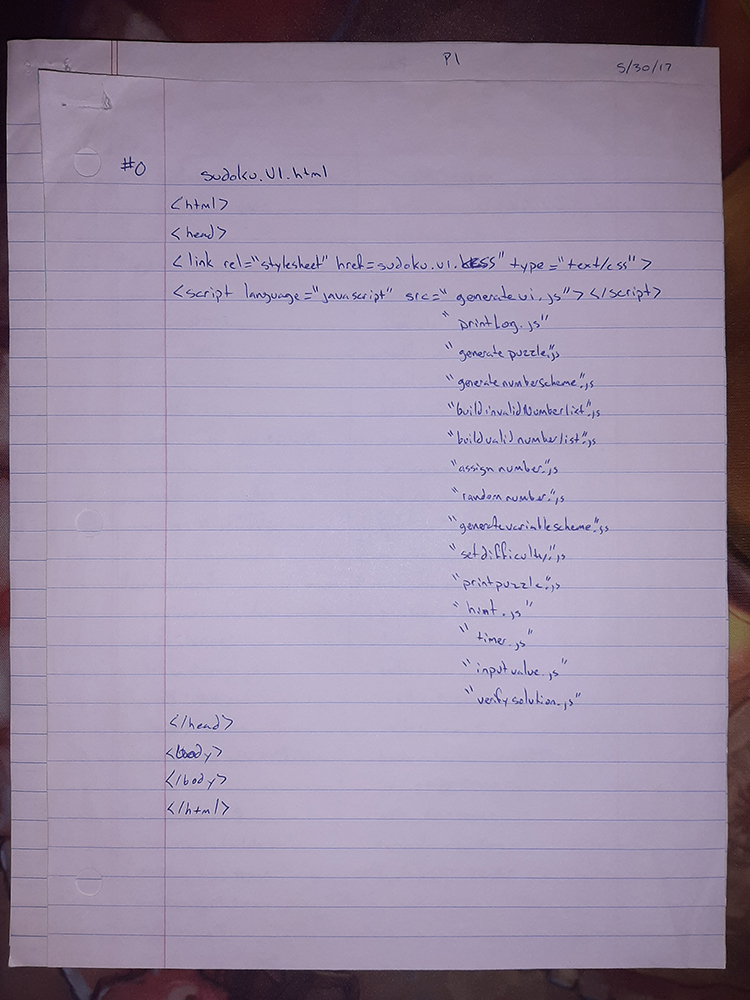 P1
5/30/17
#0 sudoku.UI.html
<html>
<head>
<link rel="stylesheet" href=sudoku.ui.css" type="text/css">
<script language="javascript" src="generateui.js"></script>
"printLog.js"
"generatepuzzle".js
"generatenumberscheme".js
"buildinvalidNumberlist".js
"buildvalidnumberlist".js
"assignnumber".js
"randomnumber".js
"generatevariablescheme".js
"setdifficulty".js
"printpuzzle".js
"hint.js"
"timer.js"
"inputvalue.js"
"verifysolution.js"
</head>
<body>
</body>
</html>